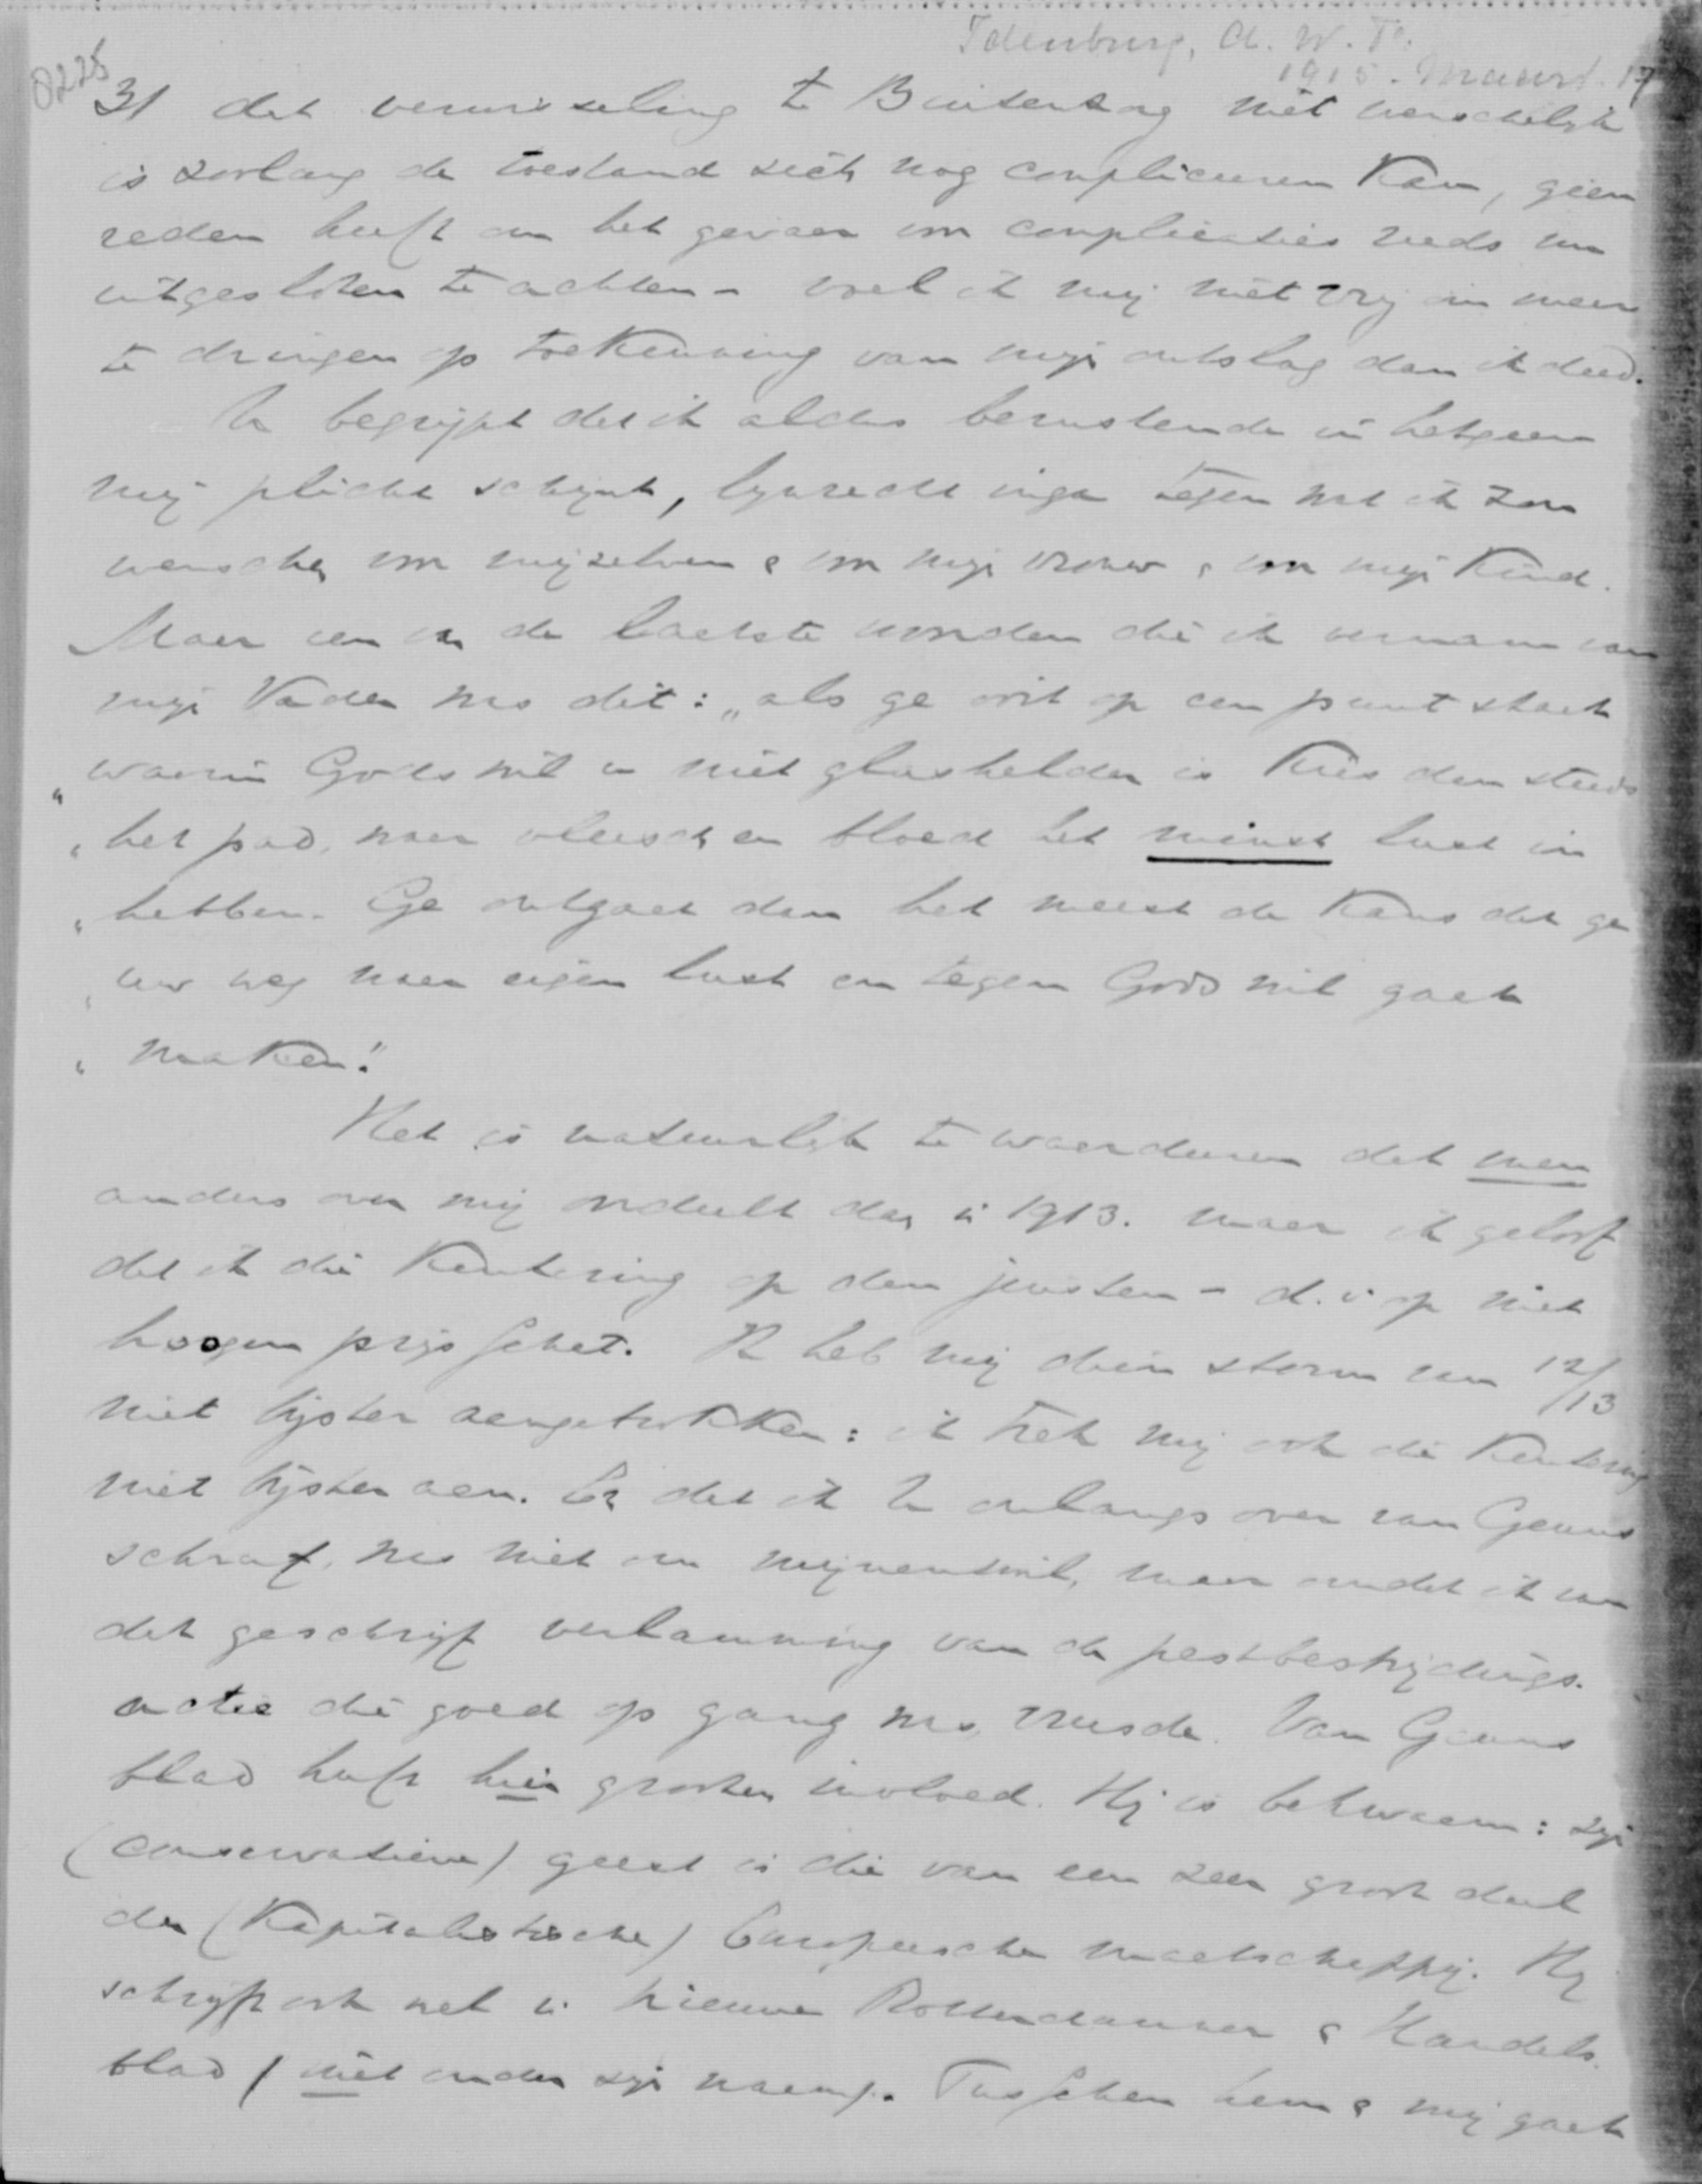 Idenburg, A. W. F.
1915. Maart 17
0225
3/ dat verwisseling te Buitenzorg niet wenschelijk
is zoolang de toestand zich nog compliceeren kan, geen
reden heeft om het gevaar voor complicaties reeds nu
uitgesloten te achten – voel ik mij niet vrij om meer
te dringen op toekenning van mijn ontslag dan ik deed.
U begrijpt dat ik aldus berustende in hetgeen
mij plicht schijnt, lijnrecht inga tegen wat ik zou
wenschen voor mijzelven & voor mijn vrouw & voor mijn kind.
Maar een van de laatste woorden die ik vernam van
mijn Vader was dit: „als ge ooit op een punt staat
„ waarin Gods wil u niet glashelder is kies dan steeds
„ het pad, waar vleesch en bloed het minst lust in
„ hebben. Ge ontgaat dan het meest de kans dat ge
„ uw weg naar eigen lust en tegen Gods wil gaat
„ maken."
Het is natuurlijk te waardeeren dat men
anders over mij oordeelt dan in 1913. maar ik geloof
dat ik die kentering op den juisten – d.i. op niet
hoogen prijs schat. Ik heb mij dien storm van 12/13
niet bijster aangetrokken: ik trek mij ook die kentering
niet bijster aan. En dat ik U onlangs over van Geuns
schreef, was niet om mijnentwil, maar omdat ik van
dat geschrijf verlamming van de pestbestrijdings-
actie die goed op gang was, vreesde. Van Geuns
blad heeft hier grooten invloed. Hij is bekwaam: zijn
(conservatieve) geest is die van een zeer groot deel
der (kapitalistische) Europeesche maatschappij. Hij
schrijft ook wel in Nieuwe Rotterdammer & Handels-
blad (niet onder zijn naam). Tusschen hem & mij gaat